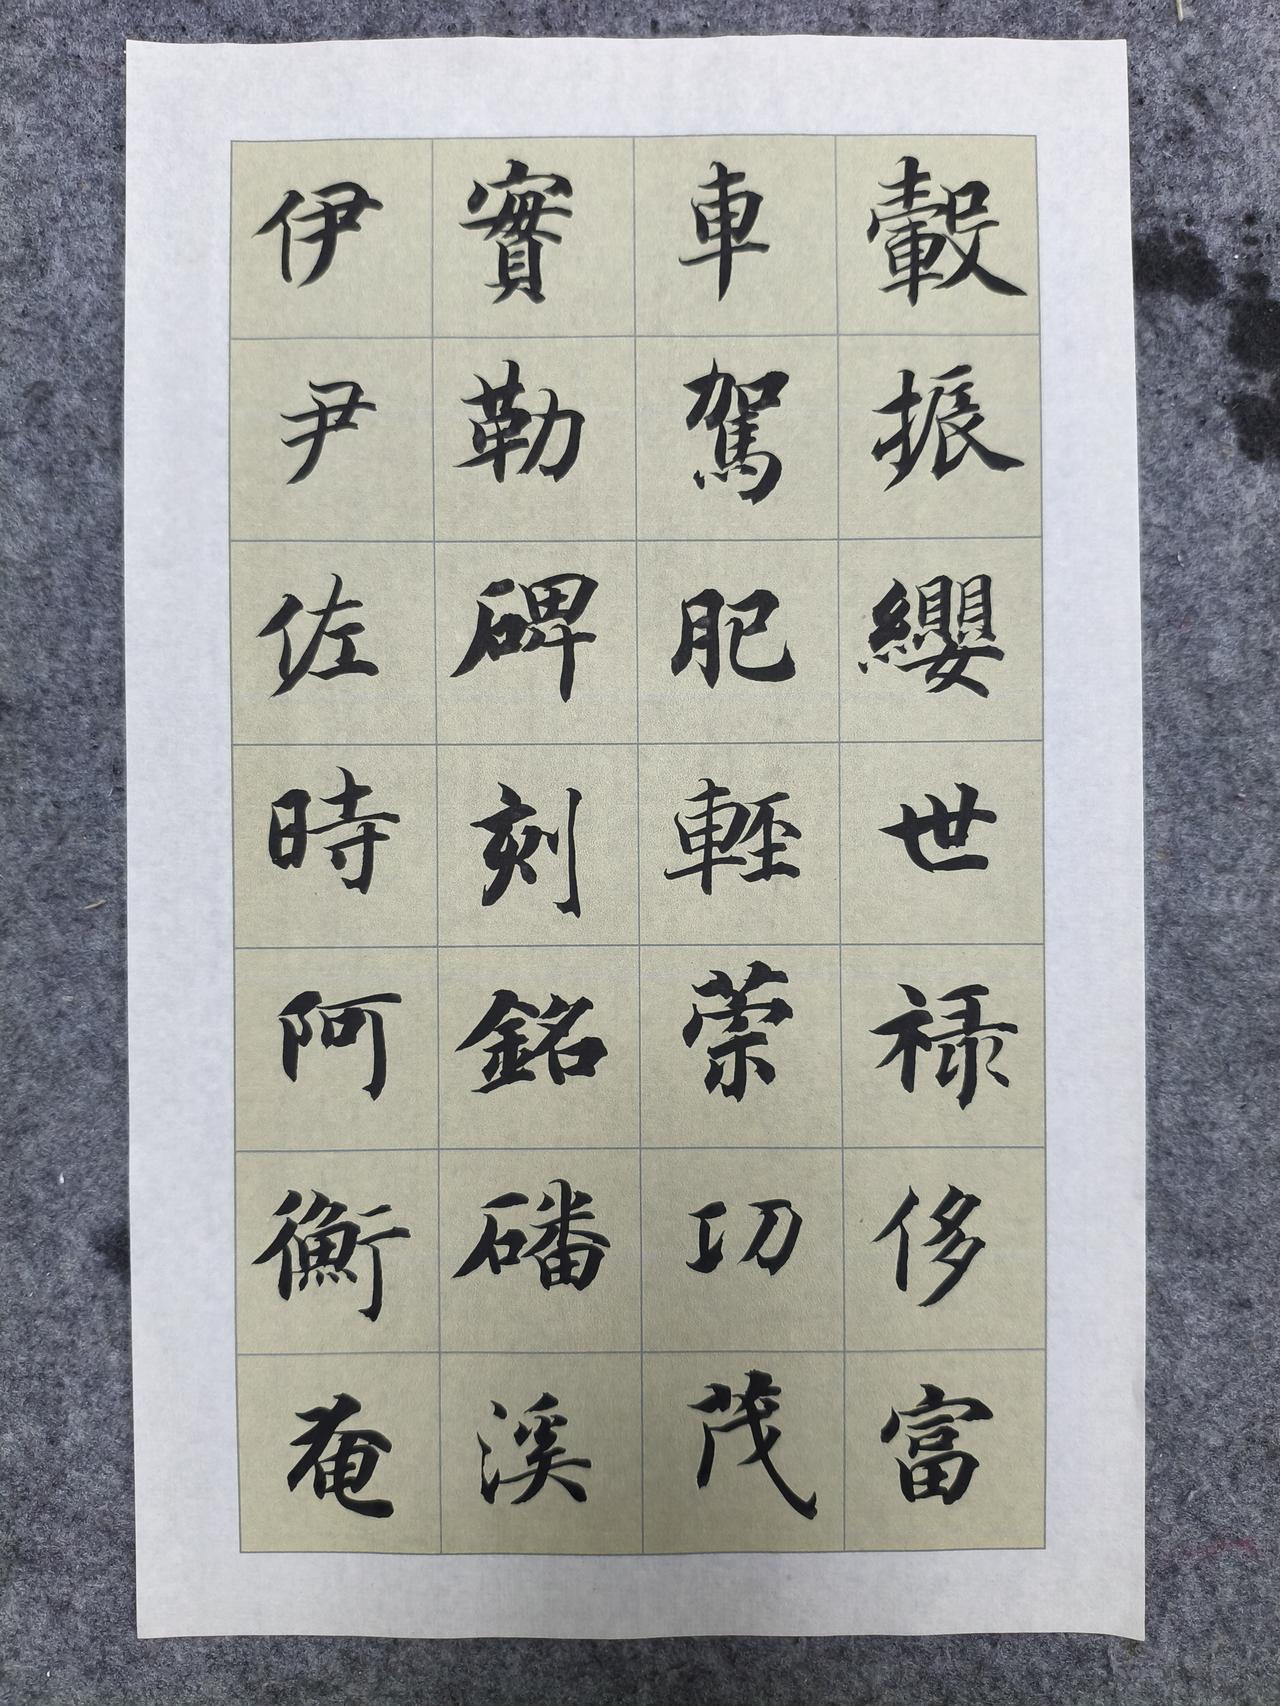 轂振纓世禄侈富
車駕肥輕策功茂
實勒碑刻銘磻溪
伊尹佐時阿衡奄